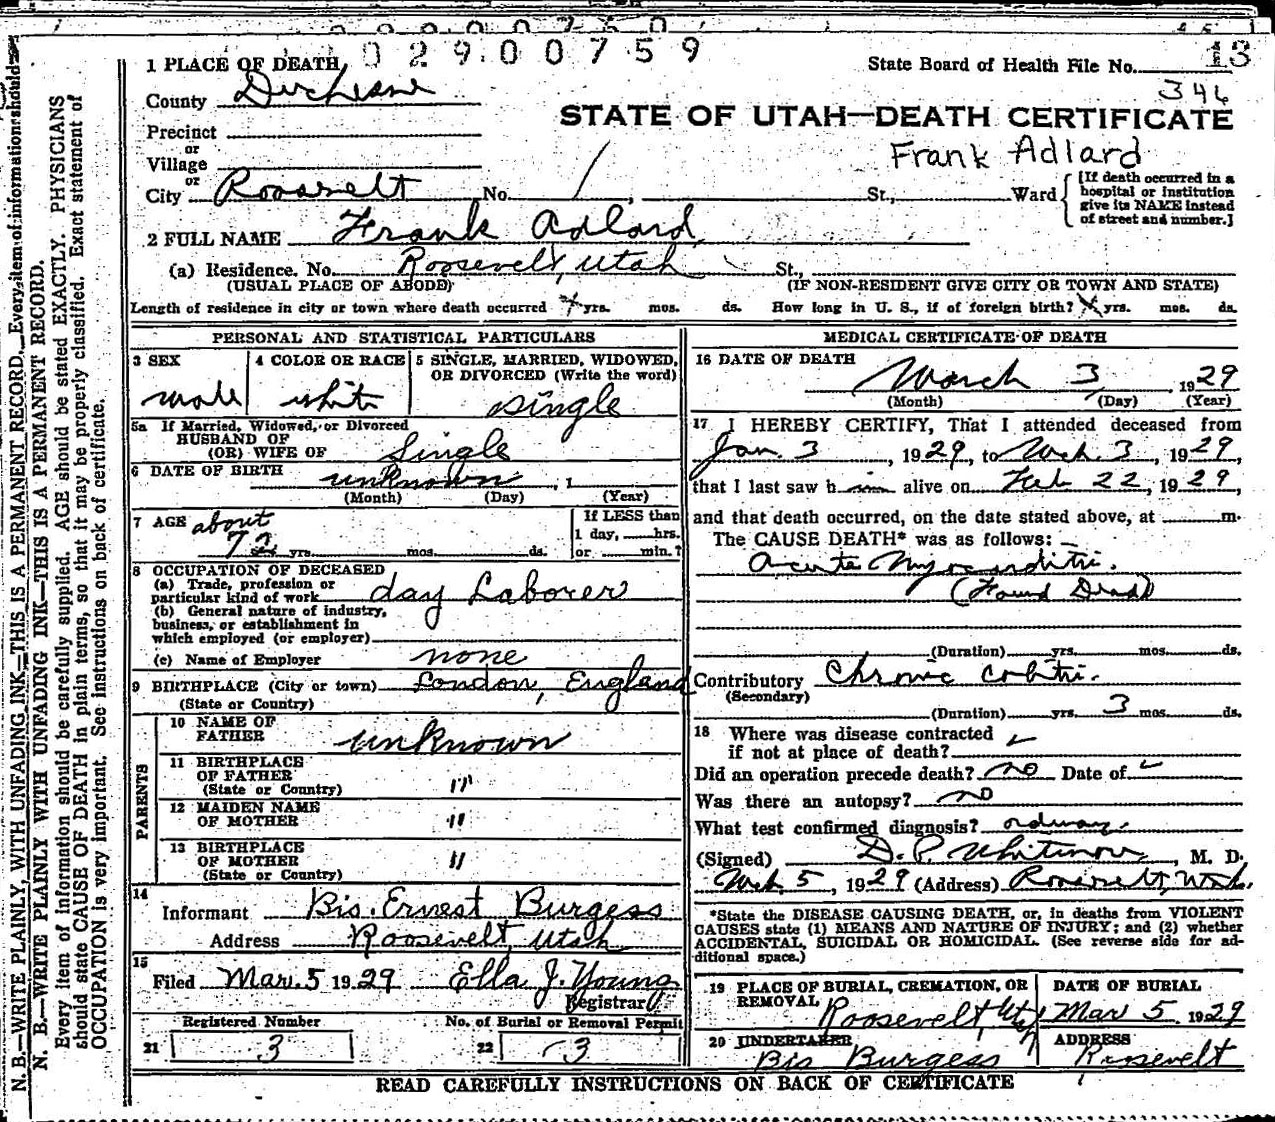 029.00759
1 PLACE OF DEATH
State Board of Health File No. 13
346
County Duchesne
STATE OF UTAH—DEATH CERTIFICATE
Precinct
or
Frank Adlard
Village
or
City Roosevelt No. St., Ward
[If death occurred in a hospital or institution give its NAME instead of street and number.]
2 FULL NAME Frank Adlard
(a) Residence. No. Roosevelt, Utah St.,
(USUAL PLACE OF ABODE) (IF NON-RESIDENT GIVE CITY OR TOWN AND STATE)
Length of residence in city or town where death occurred yrs. mos. ds. How long in U. S., if of foreign birth? yrs. mos. ds.
PERSONAL AND STATISTICAL PARTICULARS
3 SEX
male
4 COLOR OR RACE
white
5 SINGLE, MARRIED, WIDOWED,
OR DIVORCED (Write the word)
single
5a If Married, Widowed, or Divorced
HUSBAND OF
(OR) WIFE OF Single
6 DATE OF BIRTH unknown, 1
(Month) (Day) (Year)
7 AGE about
72 yrs. mos. ds.
If LESS than
1 day, hrs.
or min.?
8 OCCUPATION OF DECEASED
(a) Trade, profession or
particular kind of work day Laborer
(b) General nature of industry,
business, or establishment in
which employed (or employer)
(c) Name of Employer none
9 BIRTHPLACE (City or town) London, England
(State or Country)
PARENTS
10 NAME OF
FATHER unknown
11 BIRTHPLACE
OF FATHER "
(State or Country)
12 MAIDEN NAME
OF MOTHER "
13 BIRTHPLACE
OF MOTHER "
(State or Country)
14
Informant Bis. Ernest Burgess
Address Roosevelt, Utah
15
Filed Mar. 5 1929 Ella J. Young
Registrar
Registered Number No. of Burial or Removal Permit
21 3 22 3
MEDICAL CERTIFICATE OF DEATH
16 DATE OF DEATH
March 3, 1929
(Month) (Day) (Year)
17 I HEREBY CERTIFY, That I attended deceased from
Jan. 3, 1929, to Mch. 3, 1929,
that I last saw him alive on Feb 22, 1929,
and that death occurred, on the date stated above, at m.
The CAUSE DEATH* was as follows:
Acute Myocarditis.
(Found Dead)
(Duration) yrs. mos. ds.
Contributory Chronic
(Secondary)
(Duration) yrs. 3 mos. ds.
18 Where was disease contracted
if not at place of death?
Did an operation precede death? no Date of
Was there an autopsy? no
What test confirmed diagnosis?
(Signed) D. P. Whitmore, M. D.
Mch 5, 1929 (Address) Roosevelt, Utah.
*State the DISEASE CAUSING DEATH, or, in deaths from VIOLENT
CAUSES state (1) MEANS AND NATURE OF INJURY; and (2) whether
ACCIDENTAL, SUICIDAL OR HOMICIDAL. (See reverse side for ad-
ditional space.)
19 PLACE OF BURIAL, CREMATION, OR
REMOVAL Roosevelt, Utah
DATE OF BURIAL
Mar 5 1929
20 UNDERTAKER
Bis Burgess
ADDRESS
Roosevelt
READ CAREFULLY INSTRUCTIONS ON BACK OF CERTIFICATE
N. B.—WRITE PLAINLY, WITH UNFADING INK—THIS IS A PERMANENT RECORD. Every item of information should
N. B.—WRITE PLAINLY WITH UNFADING INK—THIS IS A PERMANENT RECORD.
Every item of information should be carefully supplied. AGE should be stated EXACTLY. PHYSICIANS
should state CAUSE OF DEATH in plain terms, so that it may be properly classified. Exact statement of
OCCUPATION is very important. See instructions on back of certificate.